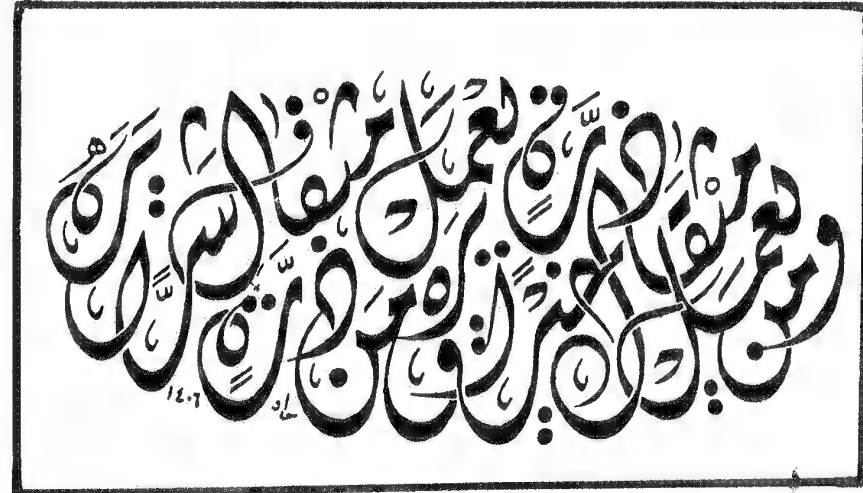 ومن يعمل مثقال ذرة خيرا يره ومن يعمل مثقال ذرة شرا يره
١٤٠٦